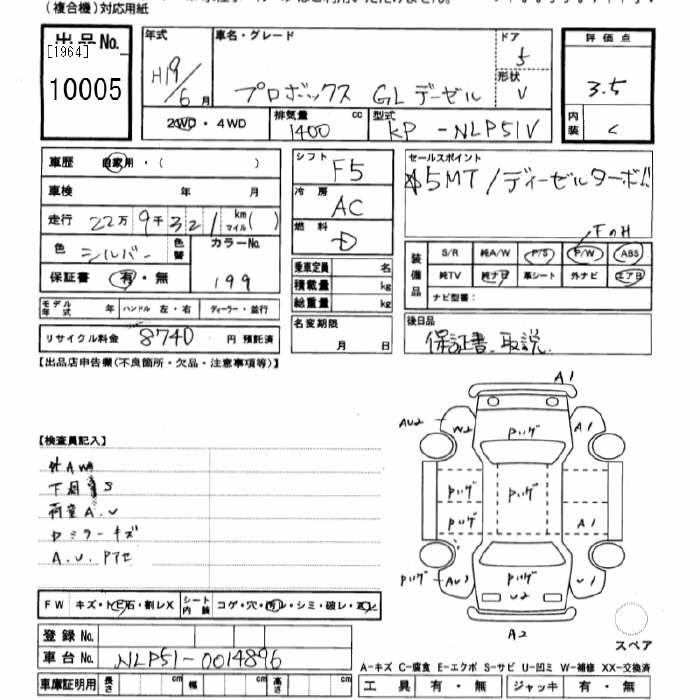 (複合機)対応用紙
出品No.
[1964]
10005
年式
H19/6月
車名・グレード
プロボックス GL デーゼル
ドア
5
形状
V
評価点
3.5
内装
C
2WD・4WD
排気量
1400 cc
型式
KP - NLP51V
車歴 自家用・( )
車検 年 月
走行 22万 9千 321 km マイル( )
色 シルバー
色替
カラーNo.
199
保証書 有・無
モデル年式 年 ハンドル 左・右 ディーラー・並行
リサイクル料金 8740 円 預託済
シフト
F5
冷房
AC
燃料
D
乗車定員 名
積載量 kg
総重量 kg
名変期限
月 日
セールスポイント
5MT/ディーゼルターボ
Fのみ
装備品
S/R 純A/W P/S P/W ABS
純TV 純ナビ 革シート 外ナビ エアB
ナビ型番:
後日品
保証書、取説
【出品店申告欄(不良箇所・欠品・注意事項等)】
【検査員記入】
外A
下廻 S
荷室A.U
ミラーキズ
A.U.
FW キズ・トビ石・割レX
シート内装 コゲ・穴・汚レ・シミ・破レ・スレ
登録No.
車台No. NLP51-0014896
車庫証明用 長さ cm 幅 cm 高さ cm
A1
AU2
W2
A1
A1
AU1
U1
U2
A2
スペア
A-キズ C-腐食 E-エクボ S-サビ U-凹ミ W-補修 XX-交換済
工具 有・無 ジャッキ 有・無